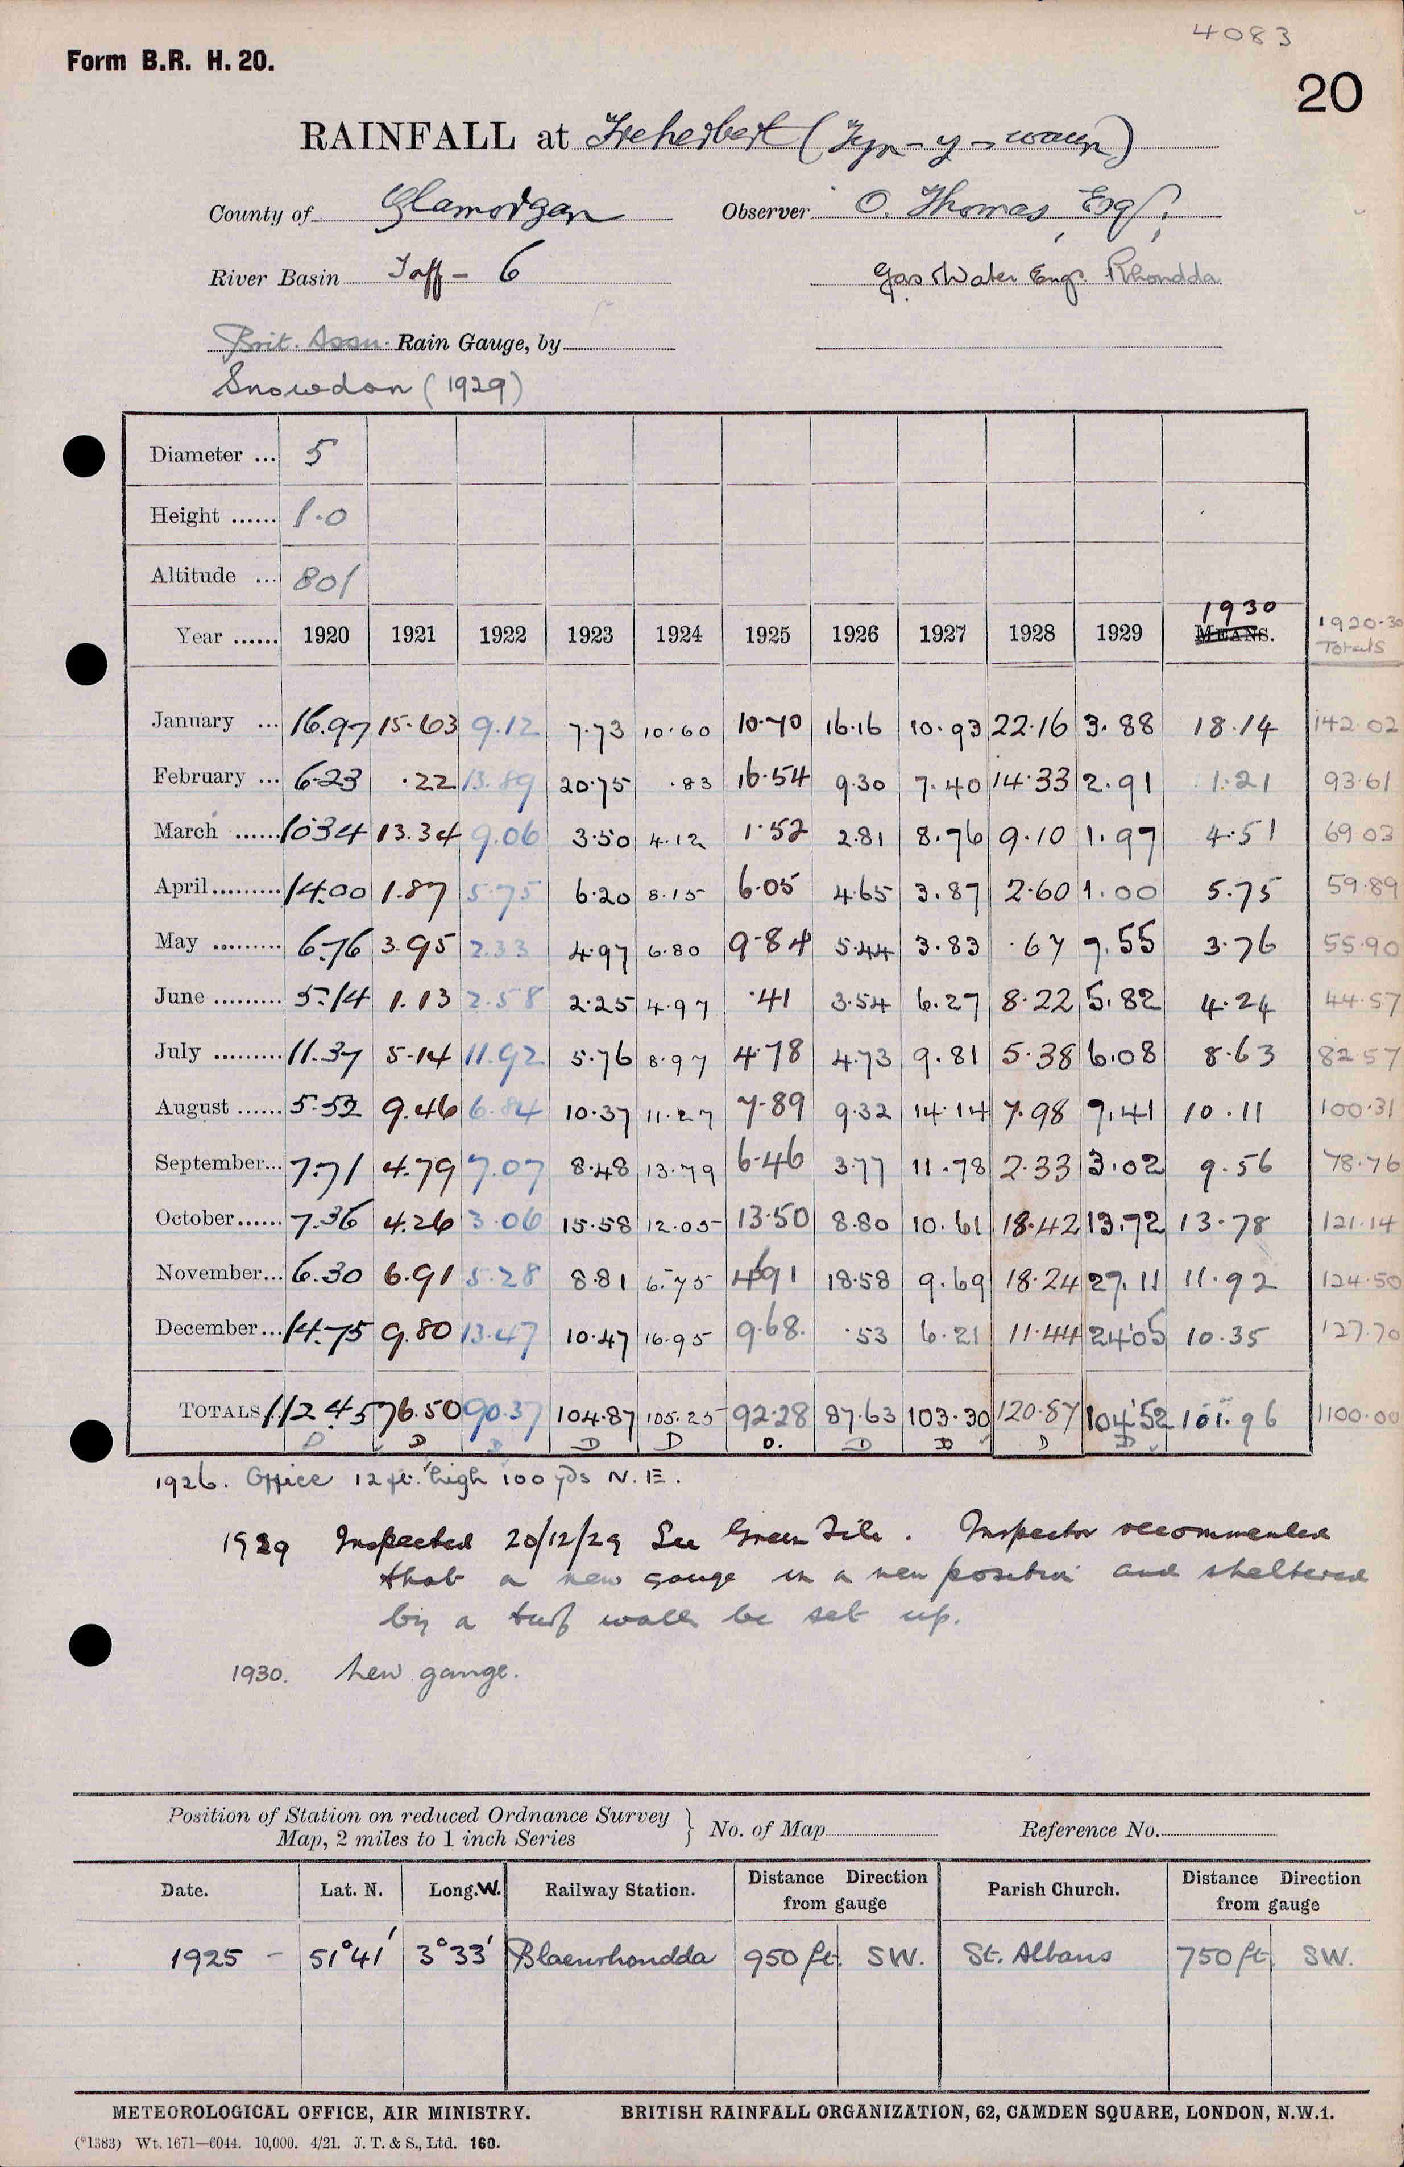 4083
Form B.R. H. 20.
20
RAINFALL at Treherbert (Tyn-y-waun)
County of Glamorgan Observer O. Thomas, Esq.
River Basin Taff - 6 Gas & Water Engr. Rhondda
Brit. Assn. Rain Gauge, by
Snowdon (1929)
Diameter ... 5
Height ...... 1.0
Altitude ... 801
1930
Year ...... 1920 1921 1922 1923 1924 1925 1926 1927 1928 1929 MEANS. 1920-30 Totals
January ... 16.97 15.63 9.12 7.73 10.60 10.70 16.16 10.93 22.16 3.88 18.14 142.02
February ... 6.23 .22 13.89 20.75 .83 16.54 9.30 7.40 14.33 2.91 1.21 93.61
March ...... 10.34 13.34 9.06 3.50 4.12 1.52 2.81 8.76 9.10 1.97 4.51 69.03
April......... 14.00 1.87 5.75 6.20 8.15 6.05 4.65 3.87 2.60 1.00 5.75 59.89
May ......... 6.76 3.95 2.33 4.97 6.80 9.84 5.44 3.83 .67 7.55 3.76 55.90
June ......... 5.14 1.13 2.58 2.25 4.97 .41 3.54 6.27 8.22 5.82 4.24 44.57
July ......... 11.37 5.14 11.92 5.76 8.97 4.78 4.73 9.81 5.38 6.08 8.63 82.57
August ...... 5.52 9.46 6.84 10.37 11.27 7.89 9.32 14.14 7.98 7.41 10.11 100.31
September... 7.71 4.79 7.07 8.48 13.79 6.46 3.77 11.78 2.33 3.02 9.56 78.76
October...... 7.36 4.26 3.06 15.58 12.05 13.50 8.80 10.61 18.42 13.72 13.78 121.14
November... 6.30 6.91 5.28 8.81 6.75 4.91 18.58 9.69 18.24 27.11 11.92 124.50
December... 14.75 9.80 13.47 10.47 16.95 9.68 .53 6.21 11.44 24.05 10.35 127.70
TOTALS 112.45 76.50 90.37 104.87 105.25 92.28 87.63 103.30 120.87 104.52 101.96 1100.00
D D D D D D. D D D D
1926. Office 12 ft. high 100 yds N.E.
1929 Inspected 20/12/29 See Green File. Inspector recommended
that a new gauge in a new position and sheltered
by a turf wall be set up.
1930. New gauge.
Position of Station on reduced Ordnance Survey
Map, 2 miles to 1 inch Series } No. of Map Reference No.
Date. Lat. N. Long. W. Railway Station. Distance Direction from gauge Parish Church. Distance Direction from gauge
1925 - 51°41' 3°33' Blaenrhondda 950 ft. SW. St. Albans 750 ft. SW.
METEOROLOGICAL OFFICE, AIR MINISTRY. BRITISH RAINFALL ORGANIZATION, 62, CAMDEN SQUARE, LONDON, N.W.1.
(*1383) Wt. 1671—6044. 10,000. 4/21. J. T. & S., Ltd. 160.